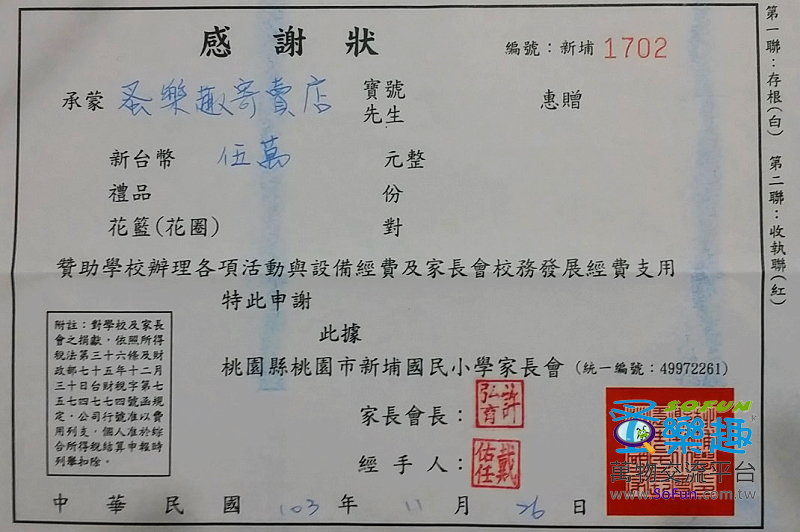 感謝狀
編號：新埔 1702
承蒙 蚤樂趣寄賣店 寶號 先生 惠贈
新台幣 伍萬 元整
禮品 份
花籃(花圈) 對
贊助學校辦理各項活動與設備經費及家長會校務發展經費支用
特此申謝
此據
桃園縣桃園市新埔國民小學家長會 (統一編號：49972261)
家長會長： 許弘育
經手人： 戴佑任
中華民國 103 年 11 月 26 日
附註：對學校及家長
會之捐獻，依照所得
稅法第三十六條及財
政部七十五年十二月
三十日台財稅字第七
五七四七七四號函規
定，公司行號准以費
用列支，個人准於綜
合所得稅結算申報時
列舉扣除。
第一聯：存根(白) 第二聯：收執聯(紅)
SOFUN
蚤樂趣
萬物交流平台
www.SoFun.com.tw